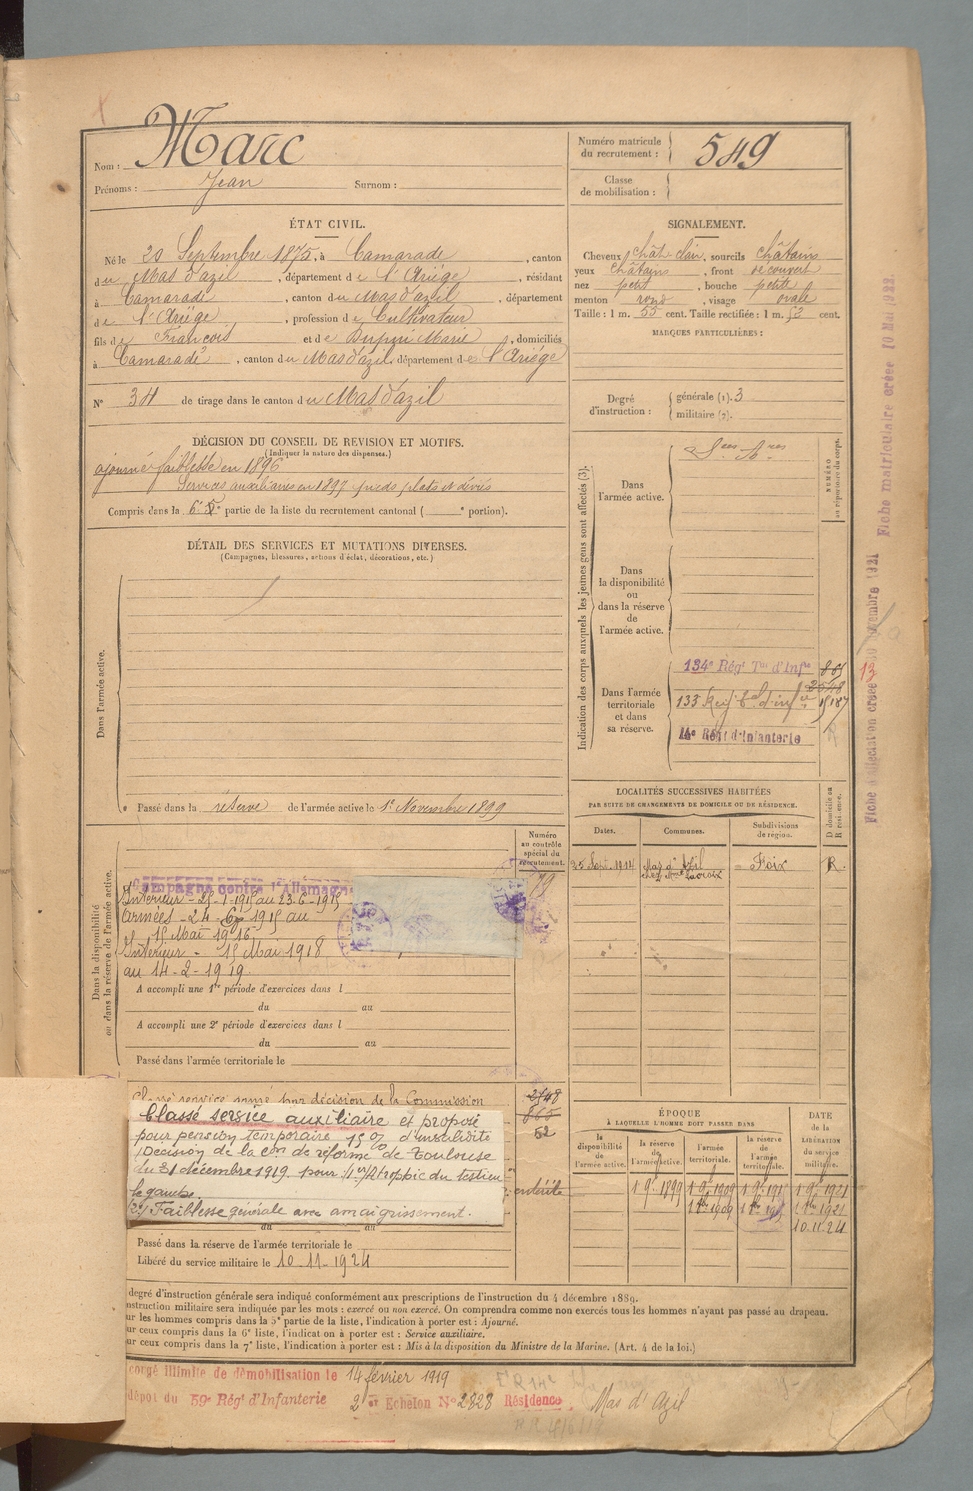 Nom : Marc
Prénoms : Jean Surnom :
Numéro matricule du recrutement : 549
Classe de mobilisation :
ÉTAT CIVIL.
Né le 20 Septembre 1875, à Camarade, canton
du Mas d'azil, département de l'Ariège, résidant
à Camarade, canton du Mas d'azil, département
de l'Ariège, profession de Cultivateur
fils de François et de Dupuy Marie, domiciliés
à Camarade, canton du Mas d'azil, département de l'Ariège
N° 34 de tirage dans le canton du Mas d'azil
SIGNALEMENT.
Cheveux chât. clair, sourcils châtains
yeux châtains, front découvert
nez petit, bouche petite
menton rond, visage ovale
Taille : 1 m. 55 cent. Taille rectifiée : 1 m. 53 cent.
MARQUES PARTICULIÈRES :
Degré d'instruction : générale (1). 3
militaire (2).
DÉCISION DU CONSEIL DE REVISION ET MOTIFS.
(Indiquer la nature des dispenses.)
ajourné faiblesse en 1896
Services auxiliaires en 1897 pieds plats et déviés
Compris dans la 6e partie de la liste du recrutement cantonal ( e portion).
DÉTAIL DES SERVICES ET MUTATIONS DIVERSES.
(Campagnes, blessures, actions d'éclat, décorations, etc.)
Dans l'armée active.
Passé dans la réserve de l'armée active le 1er Novembre 1899
Indication des corps auxquels les jeunes gens sont affectés (3).
NUMÉRO au répertoire du corps.
Dans l'armée active.
Dans la disponibilité ou dans la réserve de l'armée active.
Dans l'armée territoriale et dans sa réserve.
134e Régt Tal d'Infie
133 Reg. d'inf
14e Régt d'Infanterie
Fiche matriculaire créée 10 Mai 1922.
Fiche d'affectation créée novembre 1921
13
LOCALITÉS SUCCESSIVES HABITÉES
PAR SUITE DE CHANGEMENTS DE DOMICILE OU DE RÉSIDENCE.
Dates. Communes. Subdivisions de région. D. domicile ou R. résidence.
1914 Mas d'Azil Foix R.
Dans la disponibilité ou dans la réserve de l'armée active.
Numéro au contrôle spécial du recrutement.
Campagne contre l'Allemagne
Intérieur - 25-1-1915 au 23-6-1915
Armées - 24-6-1915 au
15 Mai 1916
Intérieur - 15 Mai 1918
au 14-2-1919.
A accompli une 1re période d'exercices dans l
du au
A accompli une 2e période d'exercices dans l
du au
Passé dans l'armée territoriale le
Classé service armé par décision de la Commission
52
Classé service auxiliaire et proposé
pour pension temporaire 15 % d'invalidité
Décision de la Con de réforme de Toulouse
du 31 décembre 1919 pour 1er) Atrophie du testicu-
le gauche.
2e) Faiblesse générale avec amaigrissement.
entérite
du au
Passé dans la réserve de l'armée territoriale le
Libéré du service militaire le 10-11-1924
ÉPOQUE
À LAQUELLE L'HOMME DOIT PASSER DANS
la disponibilité de l'armée active. la réserve de l'armée active. l'armée territoriale. la réserve de l'armée territoriale.
DATE de la LIBÉRATION du service militaire.
1 9e 1899 1 9e 1909 1 9e 1915 1 9e 1921
10.11.24
degré d'instruction générale sera indiqué conformément aux prescriptions de l'instruction du 4 décembre 1889.
nstruction militaire sera indiquée par les mots : exercé ou non exercé. On comprendra comme non exercés tous les hommes n'ayant pas passé au drapeau.
ur les hommes compris dans la 5e partie de la liste, l'indication à porter est : Ajourné.
ur ceux compris dans la 6e liste, l'indication à porter est : Service auxiliaire.
ur ceux compris dans la 7e liste, l'indication à porter est : Mis à la disposition du Ministre de la Marine. (Art. 4 de la loi.)
congé illimité de démobilisation le 14 février 1919
dépôt du 59e Régt d'Infanterie 2e Echelon N° 2828 Résidence Mas d'Azil